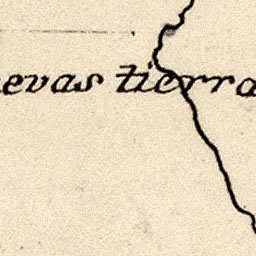 evas tierra